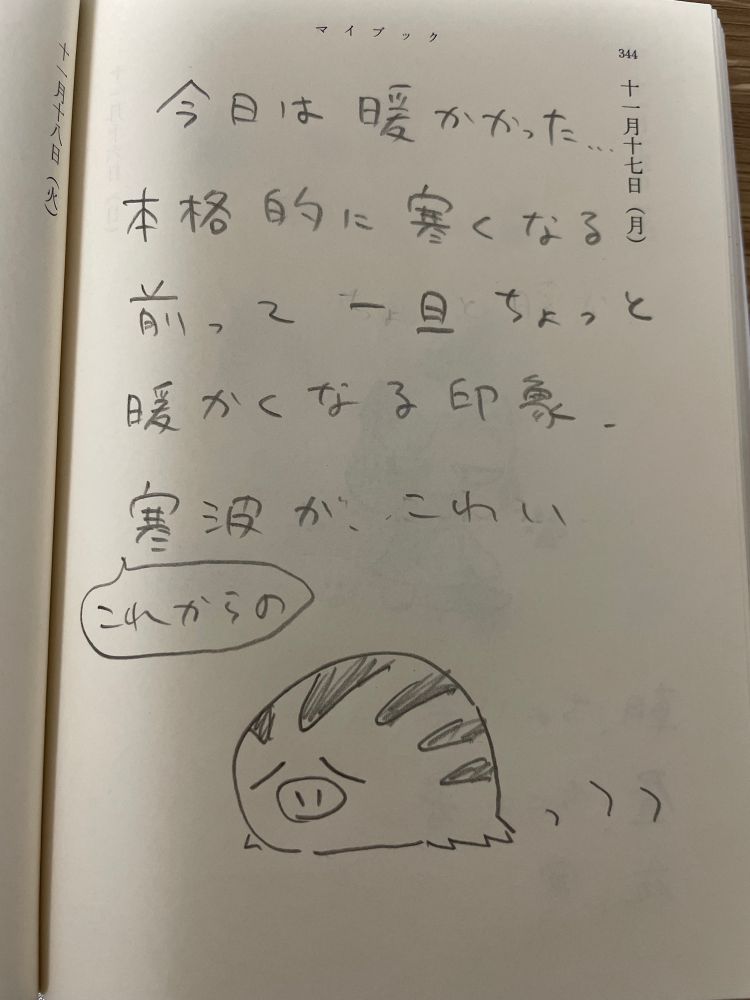 マイブック
344
十一月十七日(月)
十一月十八日(火)
今日は暖かかった...
本格的に寒くなる
前って一旦ちょっと
暖かくなる印象.
寒波が、こわい
これからの